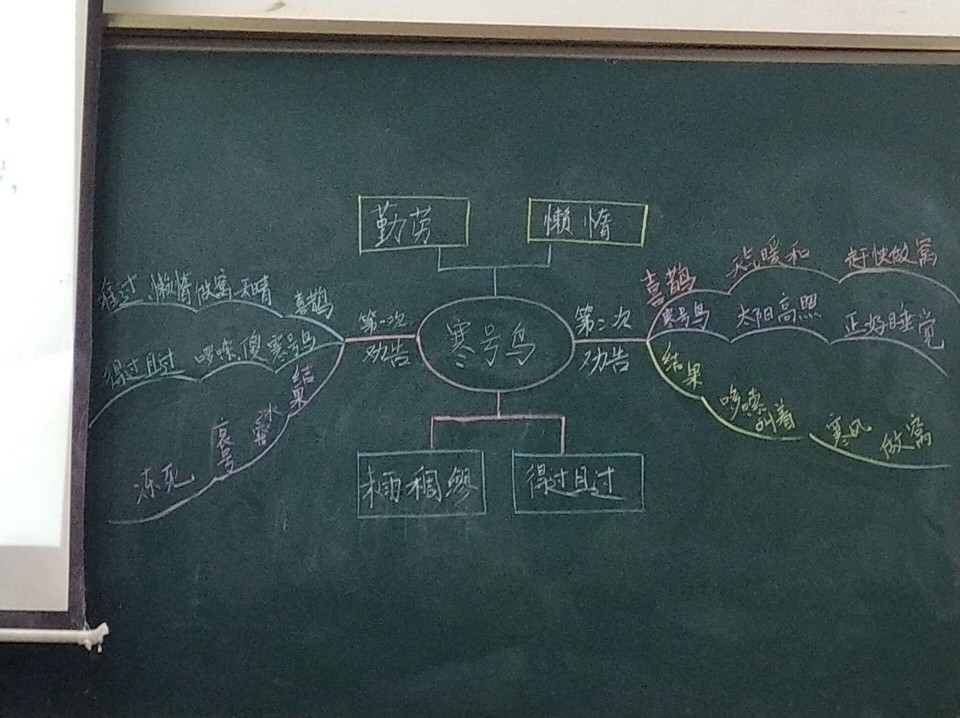 勤劳
懒惰
寒号鸟
未雨稠缪
得过且过
第一次
劝告
喜鹊
难过 懒惰 做窝 天晴
寒号鸟
得过且过 哆嗦 傻
结果
冰
哀号
冻死
第二次
劝告
喜鹊
天气暖和
赶快做窝
寒号鸟
太阳高照
正好睡觉
结果
哆嗦
叫着
寒风
做窝